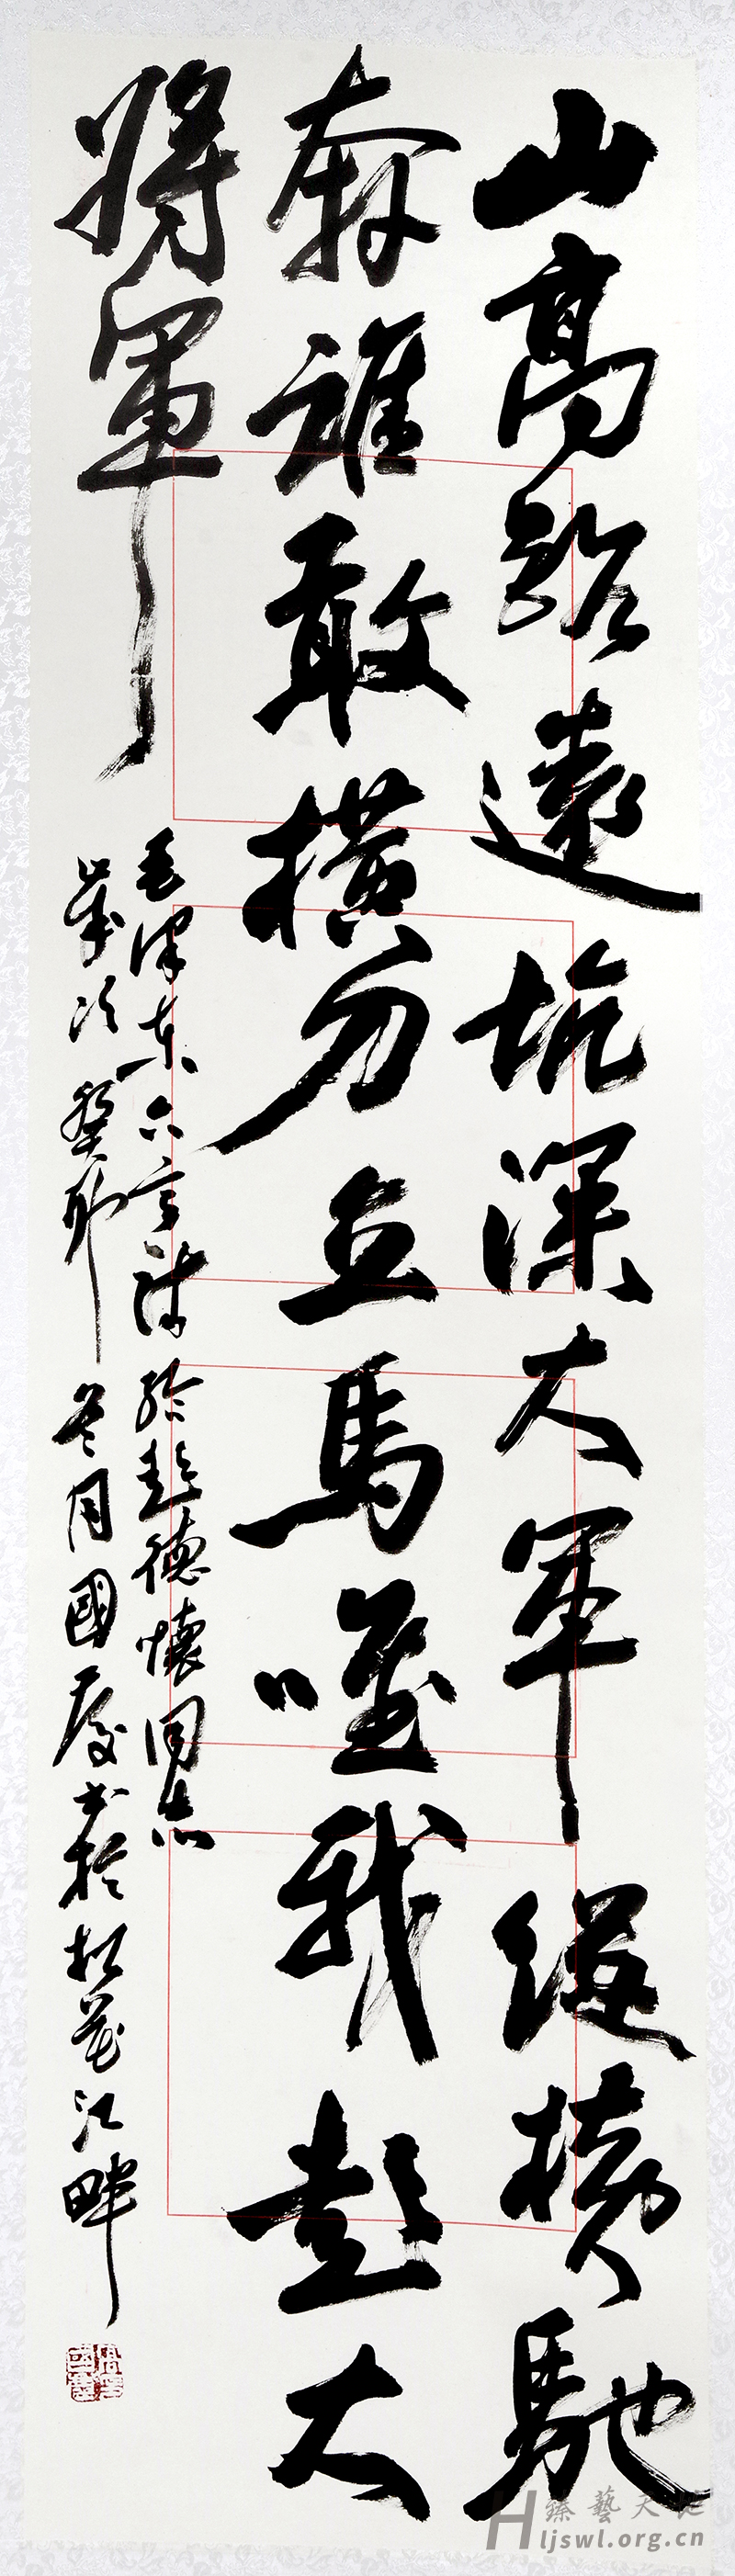 山高路遠坑深大軍縱橫馳
奔誰敢橫刀立馬唯我彭大
將軍
毛澤東六言詩給彭德懷同志
歲次癸卯冬月國慶書於松花江畔
臻藝天地
Hljswl.org.cn